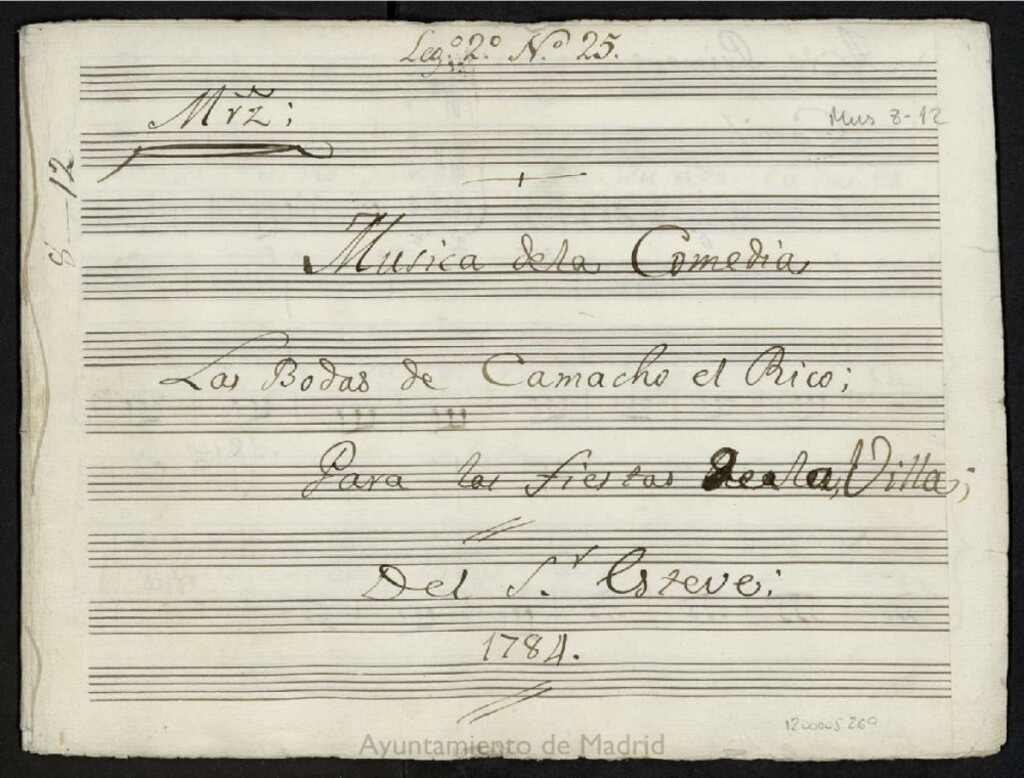 Leg.º 2.º N.º 25.
Mrz;
Mus 8-12
8-12
Musica dela Comedia
Las Bodas de Camacho el Rico;
Para las fiestas dela Villa;
Del S.r Esteve;
1784.
1200005269
Ayuntamiento de Madrid